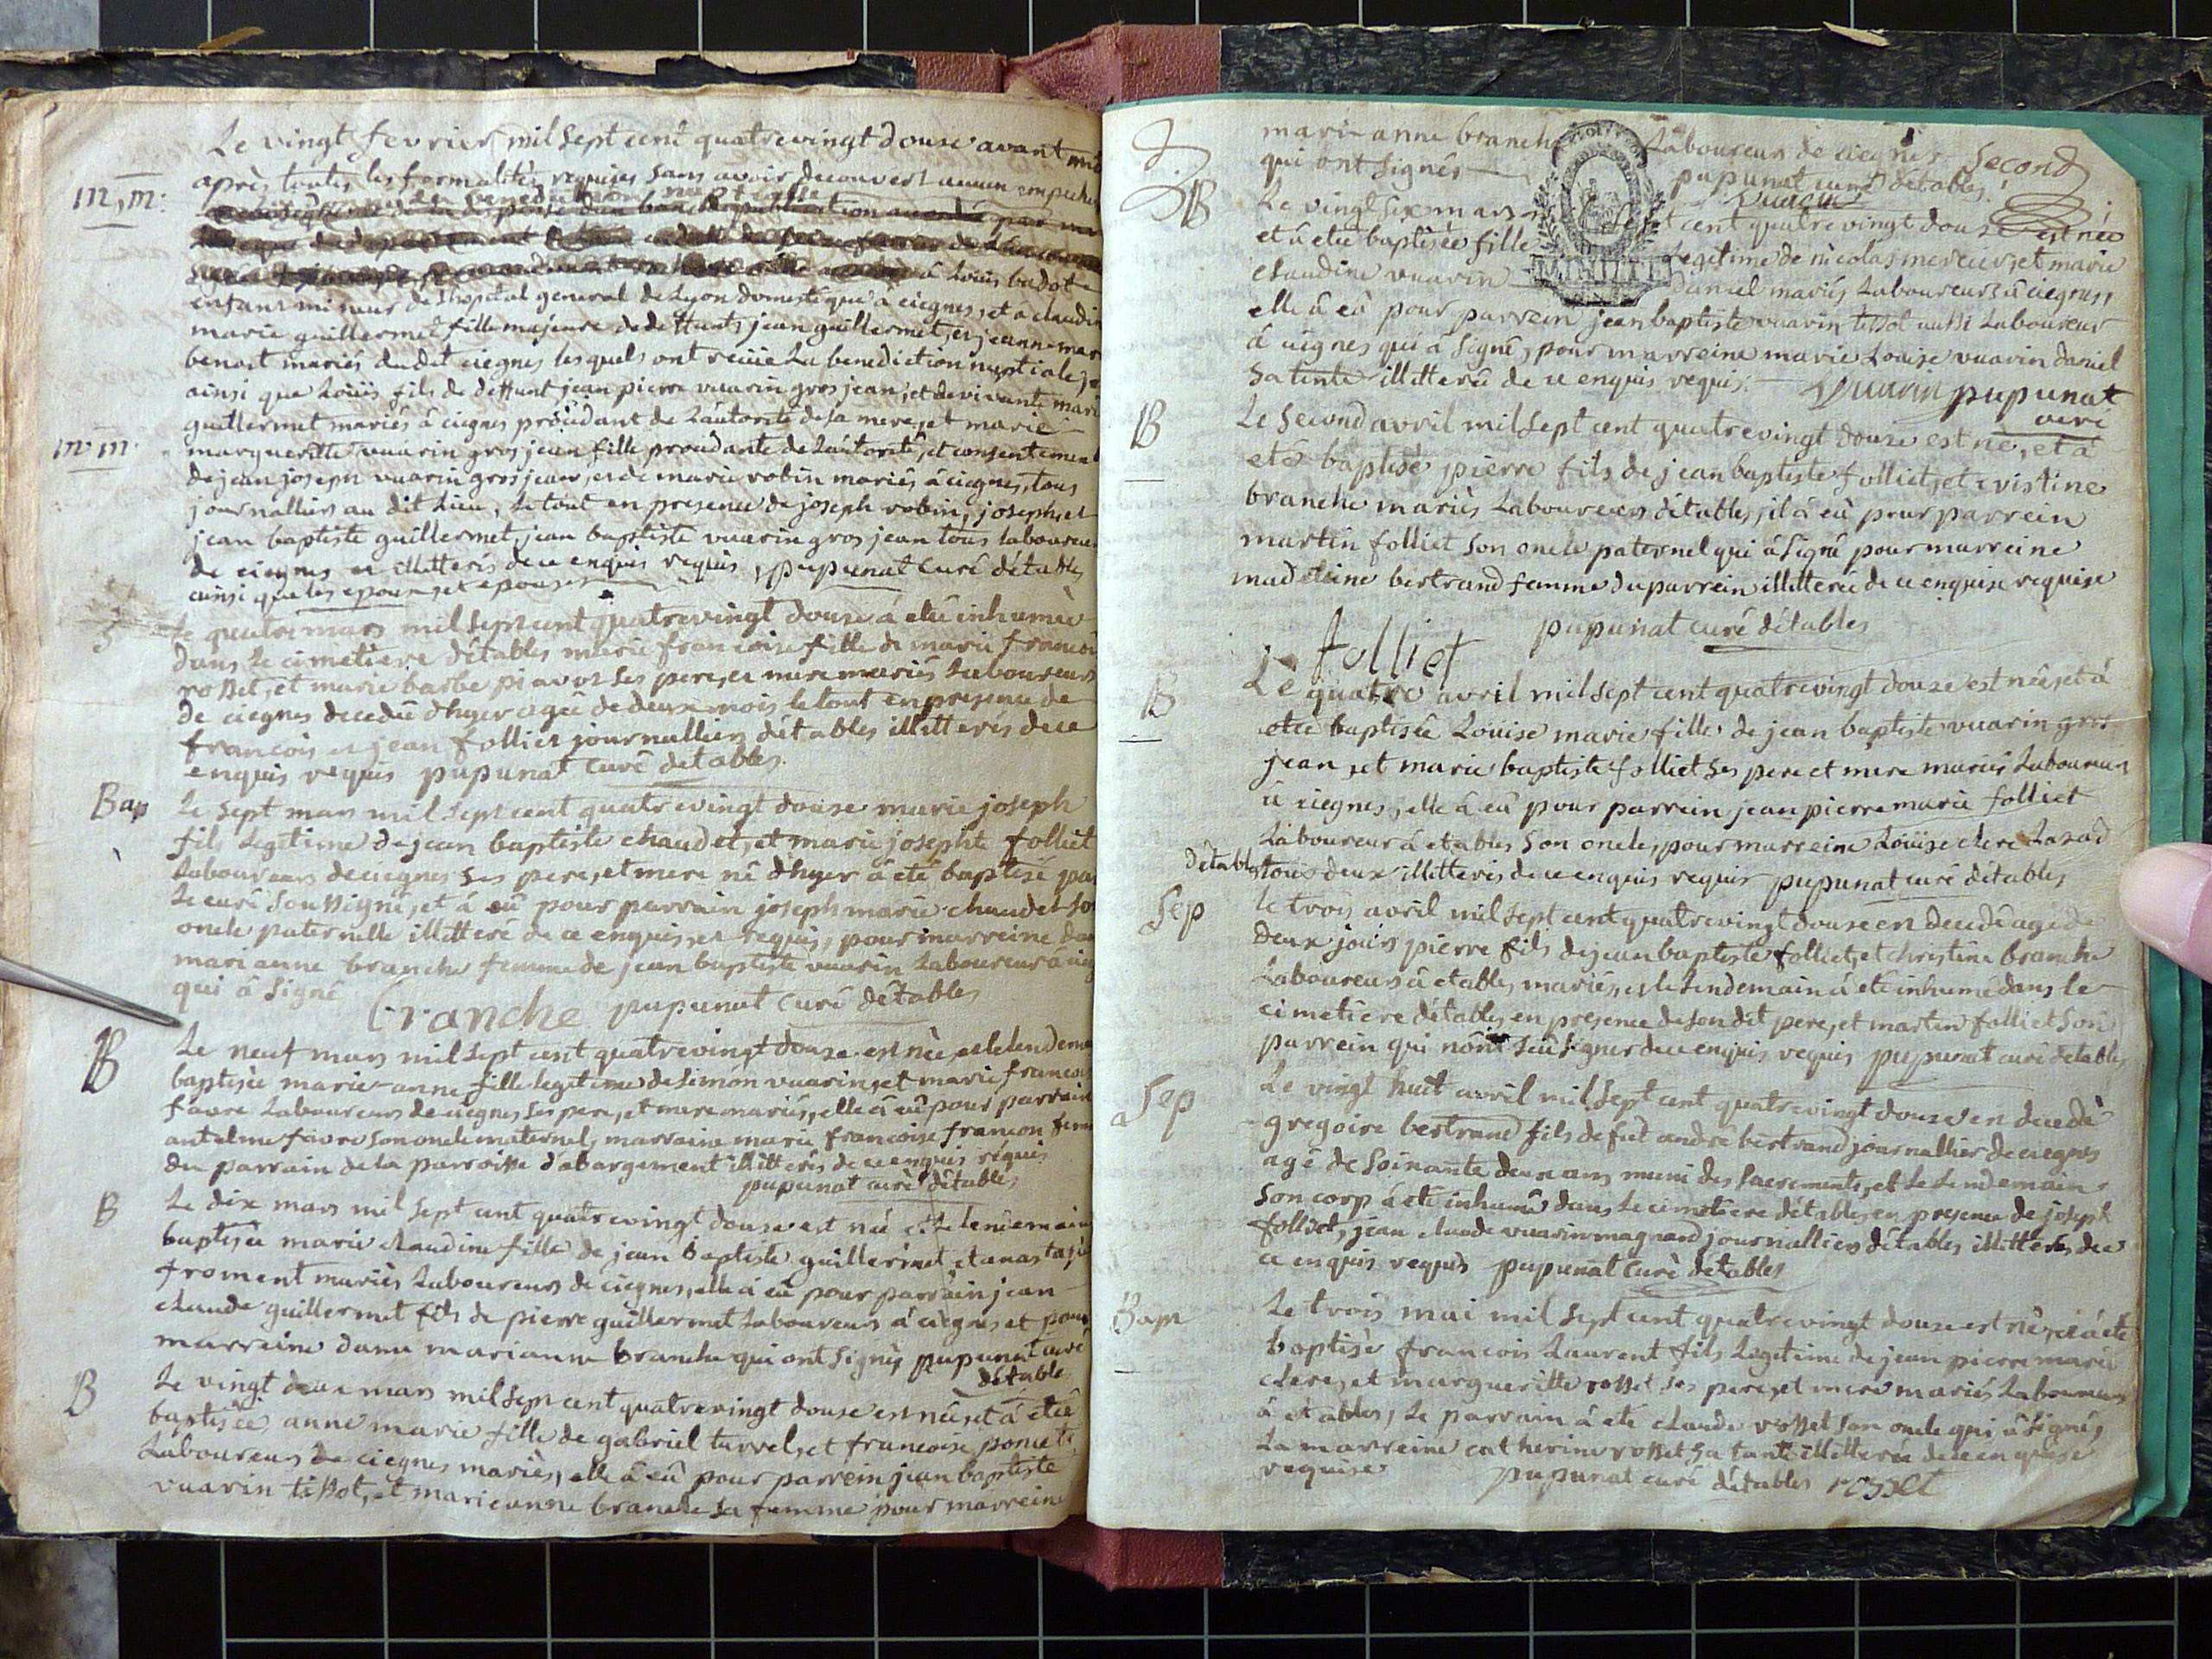 Le vingt fevrier mil sept cent quatrevingt douse avant
m,m: après toutes les formalités requises sans avoir decouvert aucun
à Loüis budot
enfant mineur de Lhopital general de Lyon domestique à ciegnes, et à claudin
marie guillermet fille majeure de deffunts jean guillermet, et jeanne mar
benoit mariés dudit ciegnes lesquels ont reçüe La benediction nuptiale,
ainsi que Loüis fils de deffunt jean pierre vuarin gros jean, et de vivante mari
guillermet mariés à ciegnes procédant de L'autorité de sa mere, et marie
m m margueritte vuarin gros jean fille procédante de L'autorité, et consentement
de jean joseph vuarin gros jean, et de marie robin mariés à ciegnes, tous
journalliers au dit Lieu, Le tout en presence de joseph robin, joseph, et
jean baptiste guillermet, jean baptiste vuarin gros jean tous laboureurs
de ciegnes et illitterés de ce enquis requis, pupunat Curé détables
ainsi que les epoux et epouses
S Le quatre mars mil sept cent quatrevingt douse à eté inhumée
dans Le cimetière détables marie francoise fille de marie francoi
rosset, et marie barbe piavoz ses pere, et mere mariés Laboureurs
de ciegnes decedée d'hyer agée de deux mois le tout en presence de
francois et jean folliet journalliers détables illitterés de ce
enquis requis pupunat Curé détables.
Bap Le sept mars mil sept cent quatrevingt douse marie joseph
fils Legitime de jean baptiste chaudet, et marie josephte folliet
Laboureurs de ciegnes ses pere, et mere né d'hyer à eté baptisé par
Le curé soussigné, et à eû pour parrain joseph marie chaudet so
oncle paternelle illitteré de ce enquis, et requis, pour marreine da
marianne branche femme de jean baptiste vuarin Laboureur à cieg
qui à signé branche pupunat Curé détables
B Le neuf mars mil sept cent quatrevingt douse est née, et le lendema
baptisée marie-anne fille legitime de simon vuarin, et marie francois
favre Laboureurs de ciegnes, ses pere, et mere mariés, elle à eû pour parrain
antelme favre son oncle maternel, marraine marie francoise francon fem
du parrain de la parroisse d'abargement illitterés de ce enquis requis
pupunat curé détables
B Le dix mars mil sept cent quatrevingt douse est née et le lendemain
baptisée marie claudine fille de jean baptiste guillermet et anastasie
froment mariés Laboureurs de ciegnes, elle à eû pour parrain jean
claude guillermet fils de pierre guillermet Laboureurs à ciegnes et pour
marreine dame marianne branche qui ont signés pupunat curé
détables
B Le vingt deux mars mil sept cent quatrevingt douse est née, et à etée
baptisée anne marie fille de gabriel turrel, et francoise poncet
Laboureurs de ciegnes mariés, elle à eû pour parrein jean baptiste
vuarin tissot, et marieanne branche sa femme pour marreine
marie anne branche Laboureurs de ciegnes second
qui ont signés pupunat curé détables
Vuarin
B Le vingt six mars sept cent quatrevingt douse est née
et à etée baptisée fille Legitime de nicolas mercier, et marie
claudine vuarin daniel mariés Laboureurs à ciegnes
MINUTE
elle à eû pour parrein jean baptiste vuarin tissot aussi Laboureur
à ciegnes qui à signé, pour marreine marie Louise vuarin daniel
sa tente illitterée de ce enquis requis. Vuarin pupunat
curé
B Le second avril mil sept cent quatrevingt douse est né, et à
eté baptisé pierre fils de jean baptiste folliet, et cristine
branche mariés Laboureurs détables, il à eû pour parrein
martin folliet son oncle paternel qui à signé pour marreine
madeleine bertrand femme du parrein illitterée de ce enquise requise
pupunat curé détables
folliet
B Le quatre avril mil sept cent quatrevingt douse est née, et à
etée baptisée Loüise marie fille de jean baptiste vuarin gros
jean, et marie baptiste folliet ses pere et mere mariés Laboureurs
à ciegnes, elle à eû pour parrein jean pierre marie folliet
Laboureur à etables son oncle, pour marreine Loüise clere Lazad
détables tous deux illitterés de ce enquis requis pupunat curé détables
Sep le trois avril mil sept cent quatrevingt douse en decedé agé de
deux jours pierre fils de jean baptiste folliet, et christine branche
Laboureurs à etables mariés, et le Lendemain à eté inhumé dans le
cimetière détables en presence de son dit pere, et martin folliet son
parrein qui n'ont sçû signer de ce enquis requis pupunat curé détables
Sep Le vingt huit avril mil sept cent quatrevingt douse en decedé
gregoire bertrand fils de fut andré bertrand journallier de ciegnes
agé de soixante deux ans muni des sacrements, et le Lendemain
son corp à eté inhumé dans le cimetière détables en presence de joseph
folliet, jean claude vuarin magnand journalliers détables illitterés de ce
ce enquis requis pupunat Curé détables
Bap Le trois mai mil sept cent quatrevingt douse est né, et à eté
baptisé francois Laurent fils Legitime de jean pierre marie
clere, et margueritte rosset ses pere, et mere mariés Laboureurs
à etables, Le parrain à eté claude rosset son oncle qui à signé,
La marreine catherine rosset sa tante illitterée de ce enquise
requise pupunat curé détables rosset